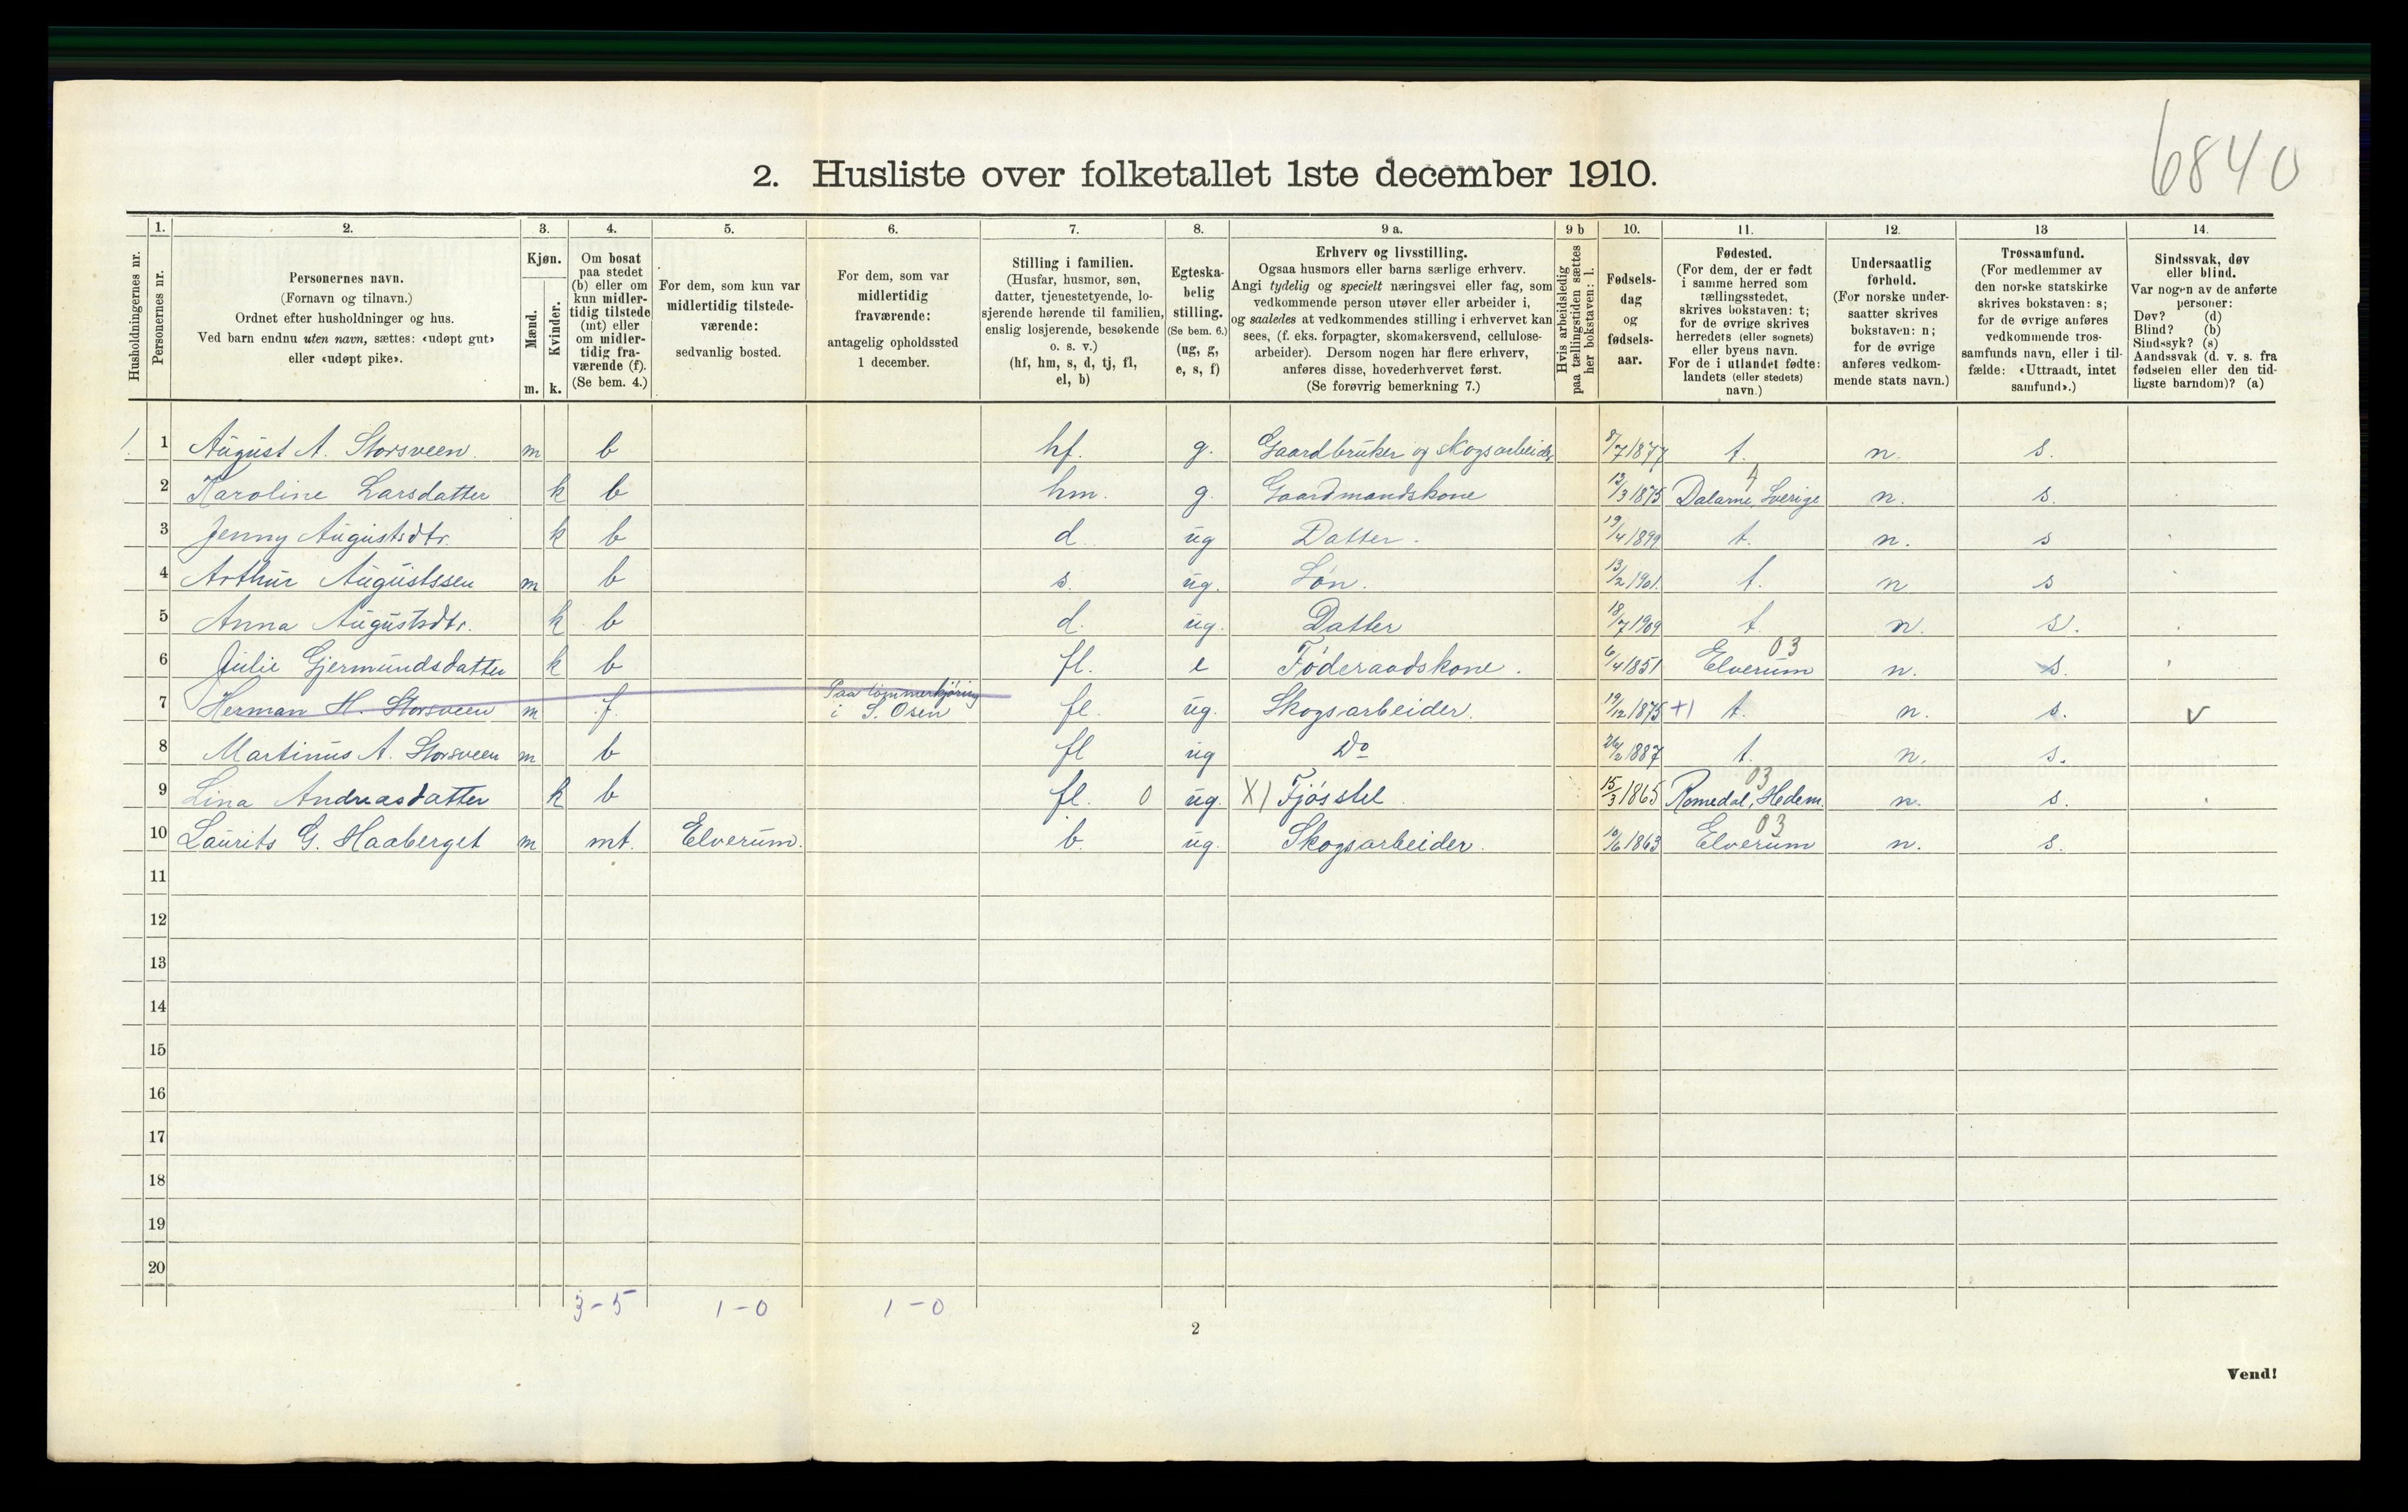 6840
2. Husliste over folketallet 1ste december 1910.
Husholdningernes nr.
1. Personernes nr.
2.
Personernes navn.
(Fornavn og tilnavn.)
Ordnet efter husholdninger og hus.
Ved barn endnu uten navn, sættes: «udøpt gut»
eller «udøpt pike».
3.
Kjøn.
Mænd. m.
Kvinder. k.
4.
Om bosat
paa stedet
(b) eller om
kun midler-
tidig tilstede
(mt) eller
om midler-
tidig fra-
værende (f).
(Se bem. 4.)
5.
For dem, som kun var
midlertidig tilstede-
værende:
sedvanlig bosted.
6.
For dem, som var
midlertidig
fraværende:
antagelig opholdssted
1 december.
7.
Stilling i familien.
(Husfar, husmor, søn,
datter, tjenestetyende, lo-
sjerende hørende til familien,
enslig losjerende, besøkende
o. s. v.)
(hf, hm, s, d, tj, fl,
el, b)
8.
Egteska-
belig
stilling.
(Se bem. 6.)
(ug, g,
e, s, f)
9 a.
Erhverv og livsstilling.
Ogsaa husmors eller barns særlige erhverv.
Angi tydelig og specielt næringsvei eller fag, som
vedkommende person utøver eller arbeider i,
og saaledes at vedkommendes stilling i erhvervet kan
sees, (f. eks. forpagter, skomakersvend, cellulose-
arbeider). Dersom nogen har flere erhverv,
anføres disse, hovederhvervet først.
(Se forøvrig bemerkning 7.)
9 b
Hvis arbeidsledig
paa tællingstiden sættes
her bokstaven: l.
10.
Fødsels-
dag
og
fødsels-
aar.
11.
Fødested.
(For dem, der er født
i samme herred som
tællingsstedet,
skrives bokstaven: t;
for de øvrige skrives
herredets (eller sognets)
eller byens navn.
For de i utlandet fødte:
landets (eller stedets)
navn.)
12.
Undersaatlig
forhold.
(For norske under-
saatter skrives
bokstaven: n;
for de øvrige
anføres vedkom-
mende stats navn.)
13
Trossamfund.
(For medlemmer av
den norske statskirke
skrives bokstaven: s;
for de øvrige anføres
vedkommende tros-
samfunds navn, eller i til-
fælde: «Uttraadt, intet
samfund».)
14.
Sindssvak, døv
eller blind.
Var nogen av de anførte
personer:
Døv? (d)
Blind? (b)
Sindssyk? (s)
Aandssvak (d. v. s. fra
fødselen eller den tid-
ligste barndom)? (a)
1. 1 August A. Storsveen. m b hf. g. Gaardbruker og skogsarbeider 8/7 1877 t. n. s.
2 Karoline Larsdatter k b hm. g. Gaardmandskone 13/3 1875 Dalarne, Sverige 4 n. s.
3 Jenny Augustsdtr. k b d ug Datter. 19/4 1899 t. n. s
4 Arthur Augustssen m b s. ug. Søn. 13/2 1901. t. n s
5 Anna Augustsdtr. k b d. ug. Datter 18/7 1909 t n. s.
6 Julie Gjermundsdatter k b fl. e Føderaadskone. 6/4 1851 Elverum 03 n. s.
7 Herman H. Storsveen m f. Paa tømmerkjøring
i S. Osen fl. ug. Skogsarbeider. 19/12 1875 +) t. n. s. v
8 Martinus A. Storsveen m b fl ug Do 26/2 1887 t. n. s.
9 Lina Andreasdatter k b fl. 0 ug. X) Fjøsstel 15/3 1865 Romedal, Hedem. 03 n. s.
10 Laurits G. Haaberget m mt. Elverum. b. ug. Skogsarbeider. 10/6 1863 Elverum 03 n. s.
11
12
13
14
15
16
17
18
19
20
3-5 1-0 1-0
2
Vend!